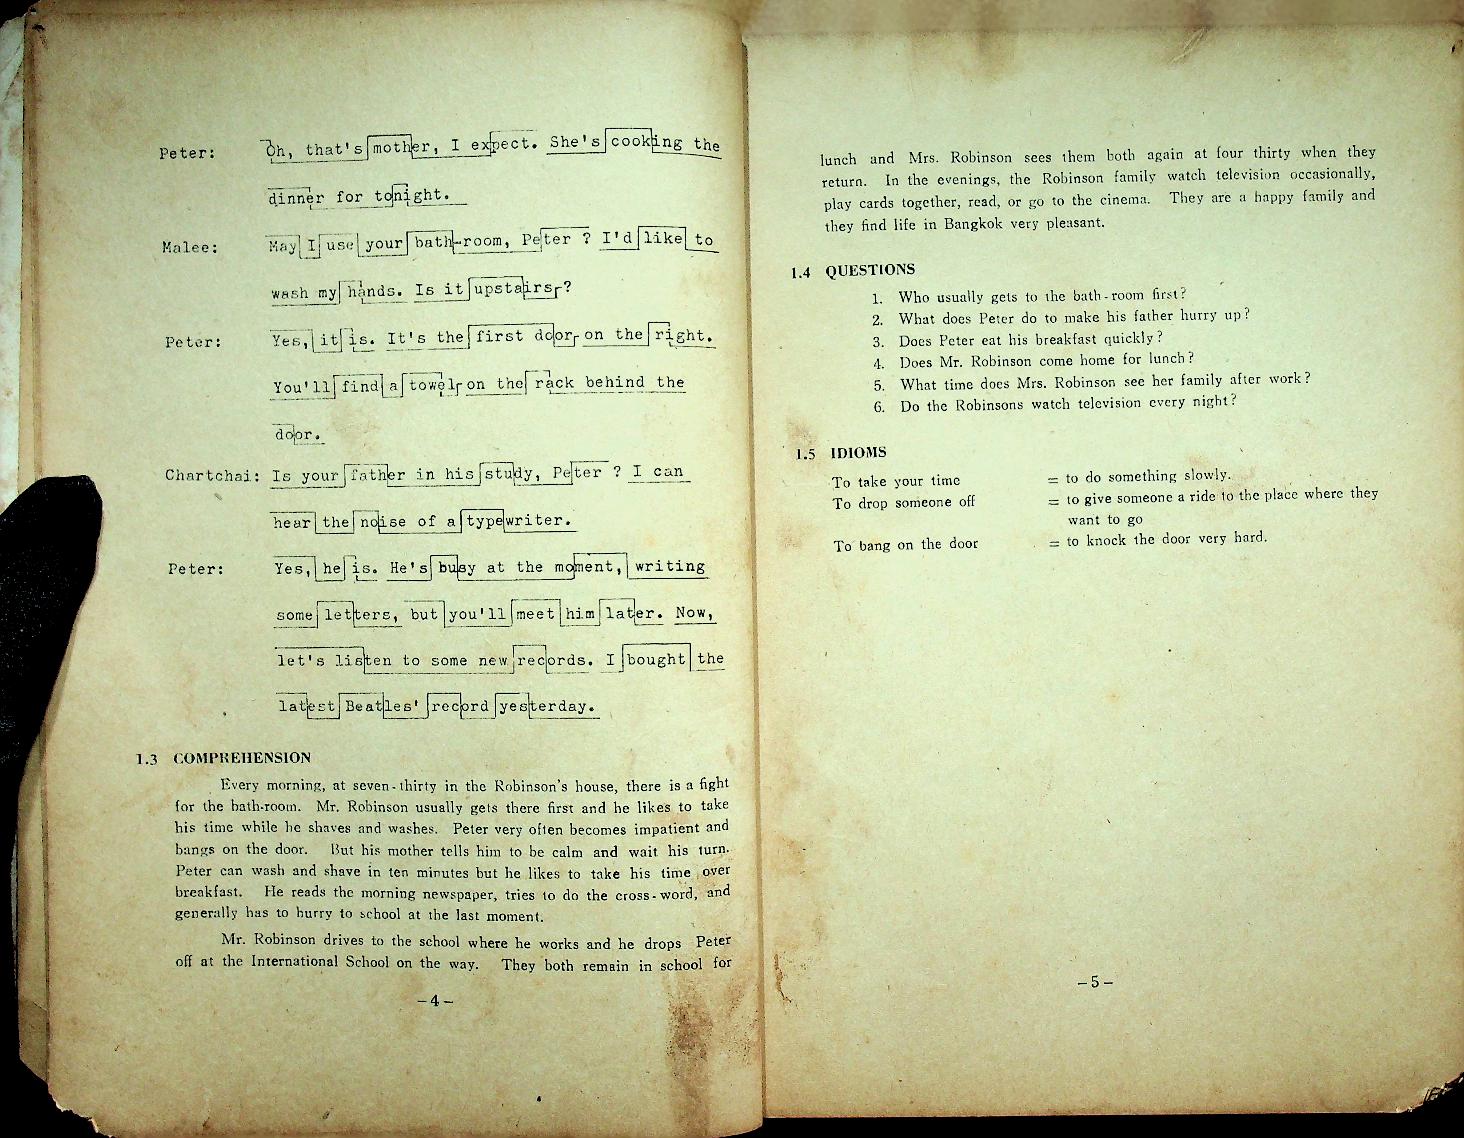 Peter: Oh, that's mother, I expect. She's cooking the
dinner for tonight.
Malee: May I use your bath-room, Peter ? I'd like to
wash my hands. Is it upstairs?
Peter: Yes, it is. It's the first door on the right.
You'll find a towel on the rack behind the
door.
Chartchai: Is your father in his study, Peter ? I can
hear the noise of a typewriter.
Peter: Yes, he is. He's busy at the moment, writing
some letters, but you'll meet him later. Now,
let's listen to some new records. I bought the
latest Beatles' record yesterday.
1.3 COMPREHENSION
Every morning, at seven-thirty in the Robinson's house, there is a fight
for the bath-room. Mr. Robinson usually gets there first and he likes to take
his time while he shaves and washes. Peter very often becomes impatient and
bangs on the door. But his mother tells him to be calm and wait his turn.
Peter can wash and shave in ten minutes but he likes to take his time over
breakfast. He reads the morning newspaper, tries to do the cross-word, and
generally has to hurry to school at the last moment.
Mr. Robinson drives to the school where he works and he drops Peter
off at the International School on the way. They both remain in school for
-4-
lunch and Mrs. Robinson sees them both again at four thirty when they
return. In the evenings, the Robinson family watch television occasionally,
play cards together, read, or go to the cinema. They are a happy family and
they find life in Bangkok very pleasant.
1.4 QUESTIONS
1. Who usually gets to the bath-room first?
2. What does Peter do to make his father hurry up?
3. Does Peter eat his breakfast quickly?
4. Does Mr. Robinson come home for lunch?
5. What time does Mrs. Robinson see her family after work?
6. Do the Robinsons watch television every night?
1.5 IDIOMS
To take your time = to do something slowly.
To drop someone off = to give someone a ride to the place where they
want to go
To bang on the door = to knock the door very hard.
-5-